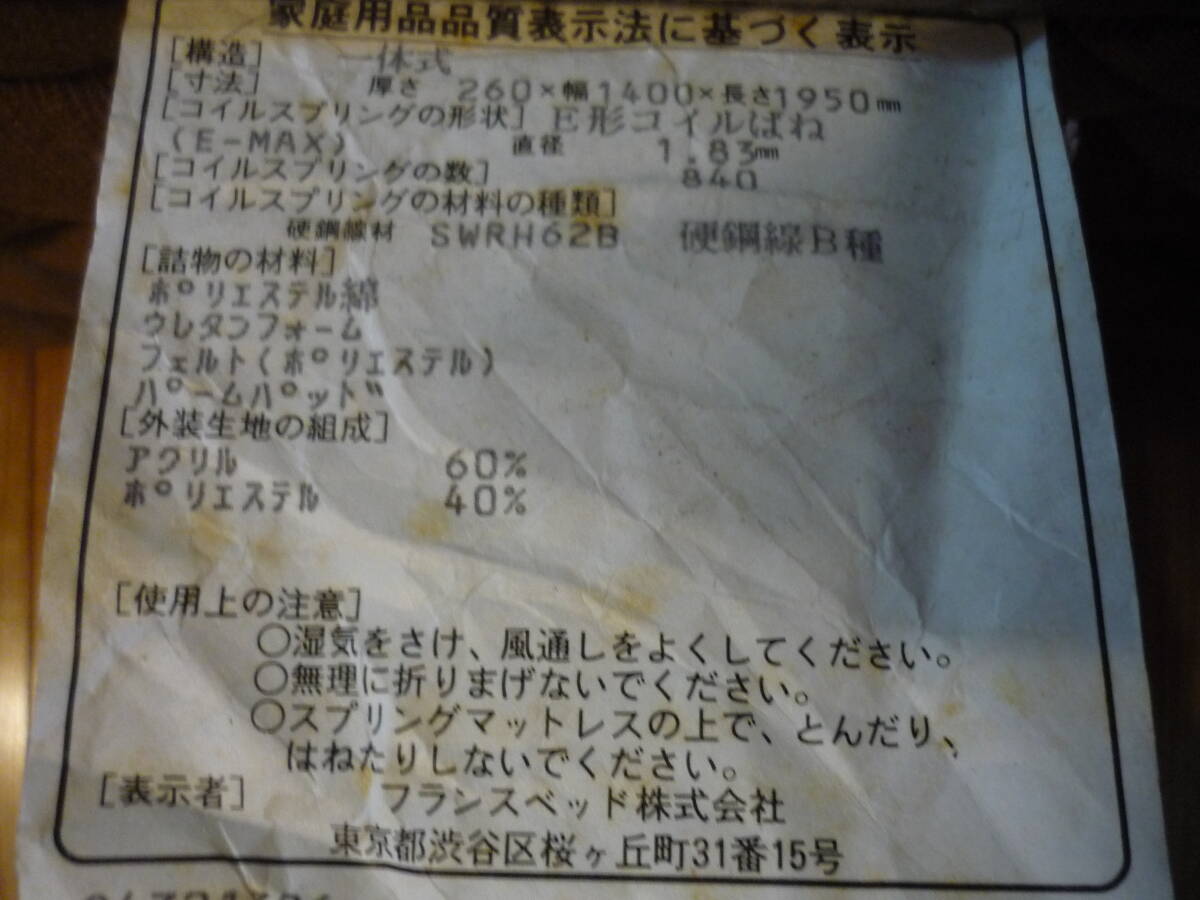 家庭用品品質表示法に基づく表示
[構造] 一体式
[寸法] 厚さ 260×幅1400×長さ1950mm
[コイルスプリングの形状] E形コイルばね
(E-MAX) 直径 1.83mm
[コイルスプリングの数] 840
[コイルスプリングの材料の種類]
硬鋼線材 SWRH62B 硬鋼線B種
[詰物の材料]
ポリエステル綿
ウレタンフォーム
フェルト(ポリエステル)
パームパッド
[外装生地の組成]
アクリル 60%
ポリエステル 40%
[使用上の注意]
○湿気をさけ、風通しをよくしてください。
○無理に折りまげないでください。
○スプリングマットレスの上で、とんだり、
はねたりしないでください。
[表示者] フランスベッド株式会社
東京都渋谷区桜ヶ丘町31番15号